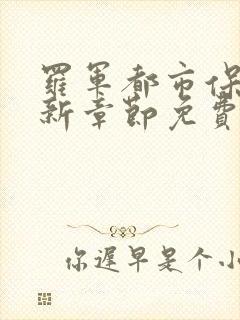 羅軍都市保
新章節免費
你遲早是个小